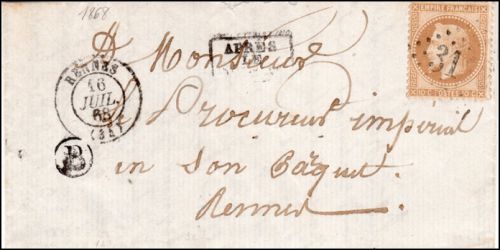 1868
EMPIRE FRANÇAIS
A Monsieur
APRÈS
LE
31
RENNES
16
JUIL.
68
(34)
Procureur impérial
B
en son Parquet
Rennes